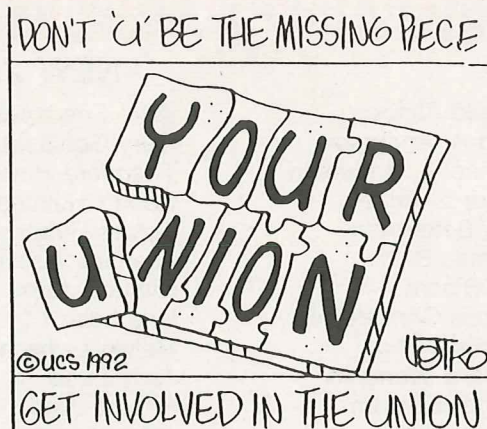 DON'T 'U' BE THE MISSING PIECE
YOUR
UNION
©UCS 1992
UOTKO
GET INVOLVED IN THE UNION